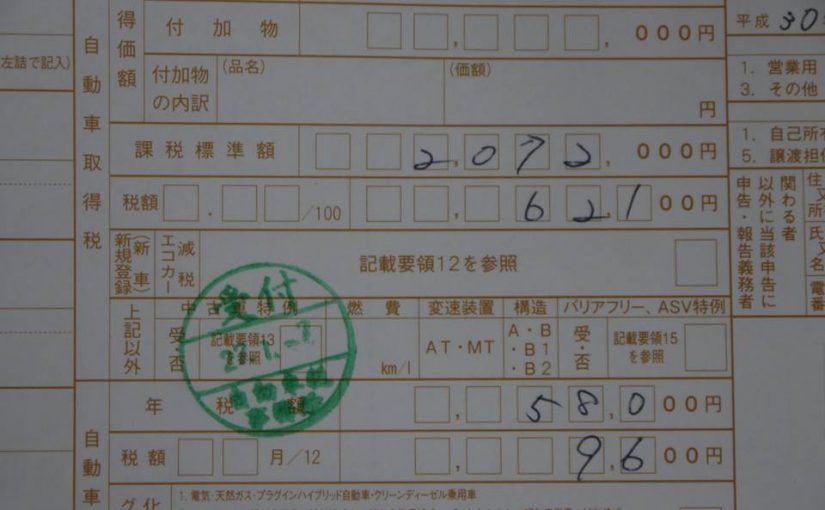 得価額 付加物 ,000円
平成30
左詰で記入)
付加物の内訳 (品名) (価額) 円
1. 営業用
3. その他
自動車取得税
課税標準額 2,072,000円
1. 自己所有
5. 譲渡担保
税額 . /100 62,100円
関わる者以外に当該申告に申告・報告義務者
住 又 所 氏 又 名 電 番
新規登録(新車) エコカー減税 記載要領12を参照
受付
上記以外 中古車特例 燃費 変速装置 構造 バリアフリー、ASV特例
受・否 記載要領13を参照 km/l AT・MT A・B・B1・B2 受・否 記載要領15を参照
年税額 58,000円
自動車
税額 月/12 9,600円
グ化
1. 電気・天然ガス・プラグインハイブリッド自動車・クリーンディーゼル乗用車